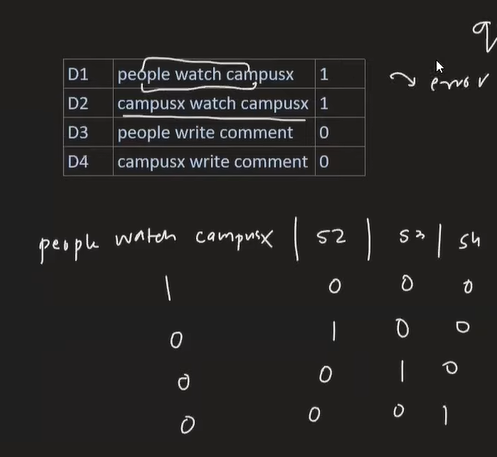 D1 people watch campusx 1
D2 campusx watch campusx 1
D3 people write comment 0
D4 campusx write comment 0
error
people watch campusx | S2 | S3 | S4
1 0 0 0
0 1 0 0
0 0 1 0
0 0 0 1